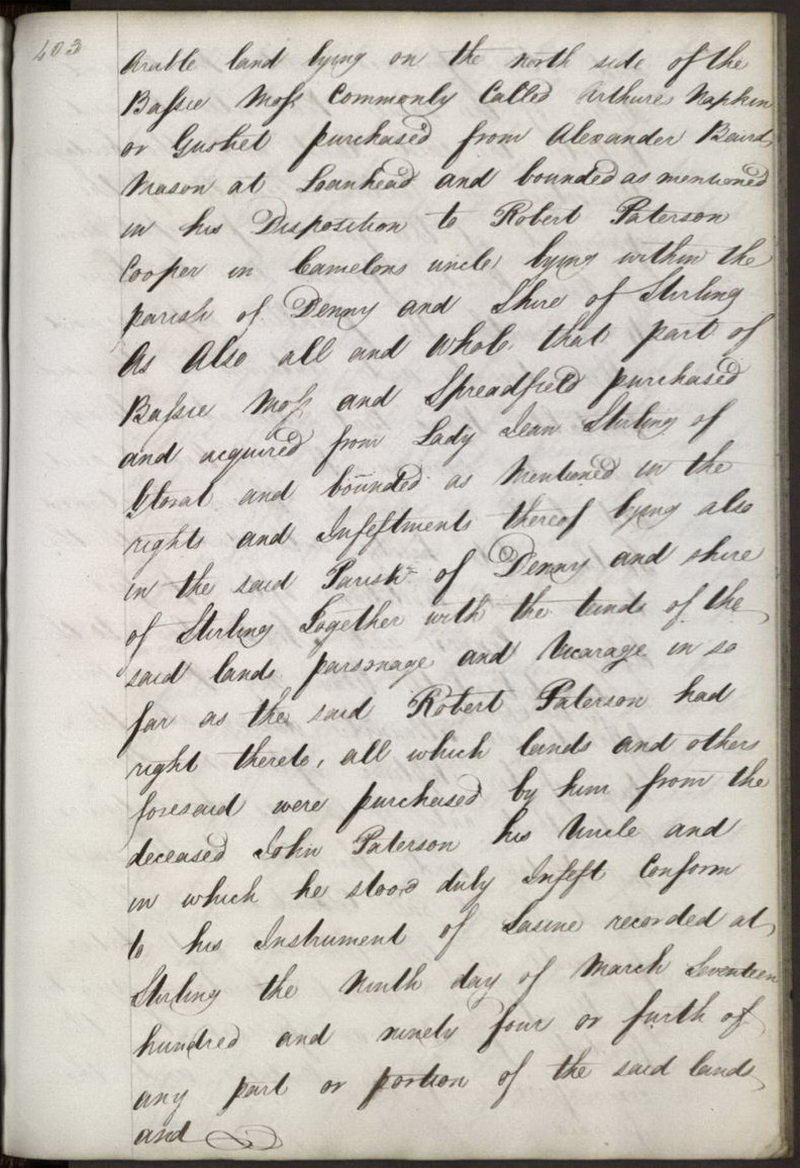 403
Arable land lying on the north side of the
Bassie Moss Commonly Called Arthures Napkin
or Gushet purchased from Alexander Baird
Mason at Loanhead and bounded as mentioned
in his Disposition to Robert Paterson
Cooper in Camelons uncle, lying within the
parish of Denny and Shire of Stirling
As Also all and whole that part of
Bassie Moss and Spreadfield purchased
and acquired from Lady Jean Stirling of
and bounded as Mentioned in the
rights and Infeftments thereof lying also
in the said Parish of Denny and shire
of Stirling Together with the teinds of the
said lands parsonage and Vicarage in so
far as the said Robert Paterson had
right thereto, all which lands and others
foresaid were purchased by him from the
deceased John Paterson his Uncle and
in which he stood duly Infeft Conform
to his Instrument of Sasine recorded at
Stirling the Ninth day of March Seventeen
hundred and ninety four or furth of
any part or portion of the said lands
and